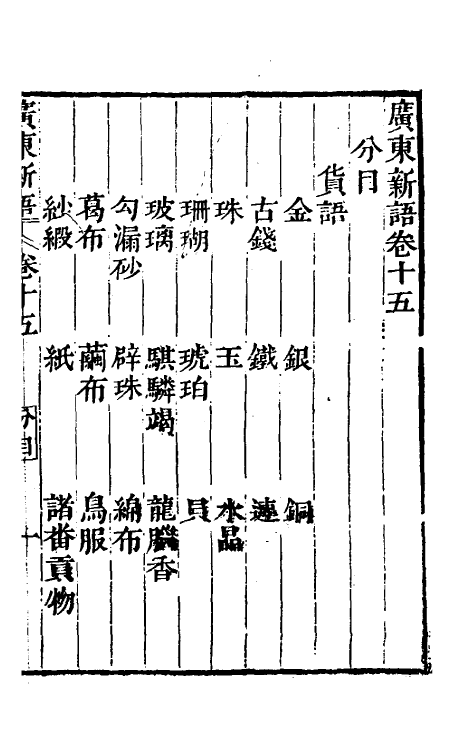 廣東新語卷十五
分目
貨語
金 銀 銅
古錢 鐵 連
珠 玉 水晶
珊瑚 琥珀 貝
玻璃 騏驎竭 龍腦香
勾漏砂 辟珠 綿布
葛布 繭布 鳥服
紗緞 紙 諸番貢物
廣東新語 卷十五 分目 一